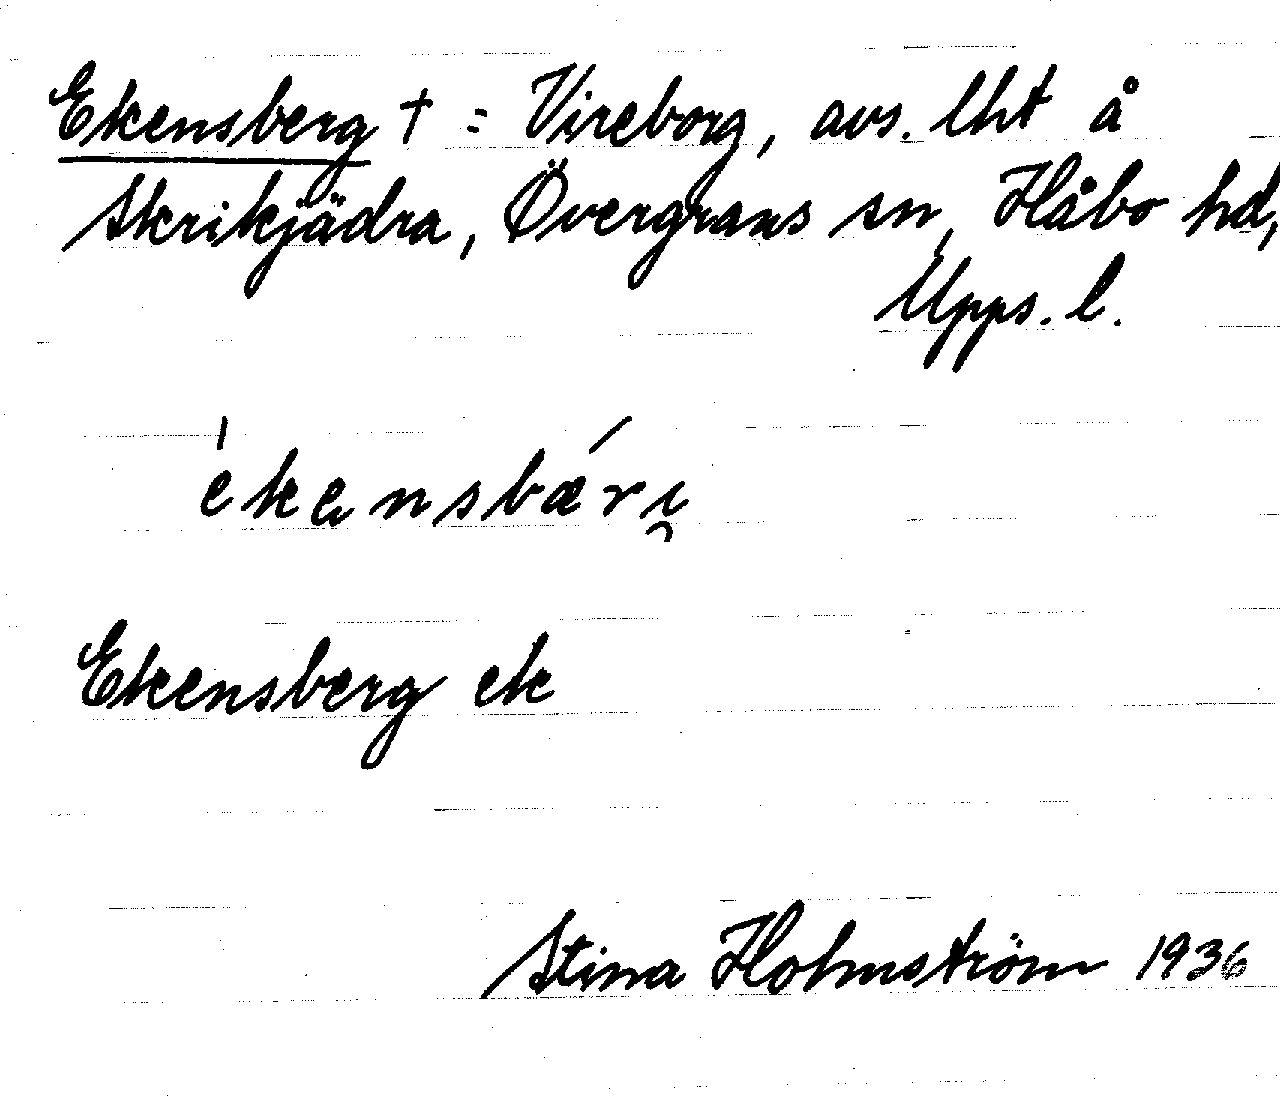 Ekensberg † = Vireborg, avs. lht å
Skrikjädra, Övergrans sn, Håbo hd,
Upps. l.
ékensbǽri̯
Ekensberg ek
Stina Holmström 1936